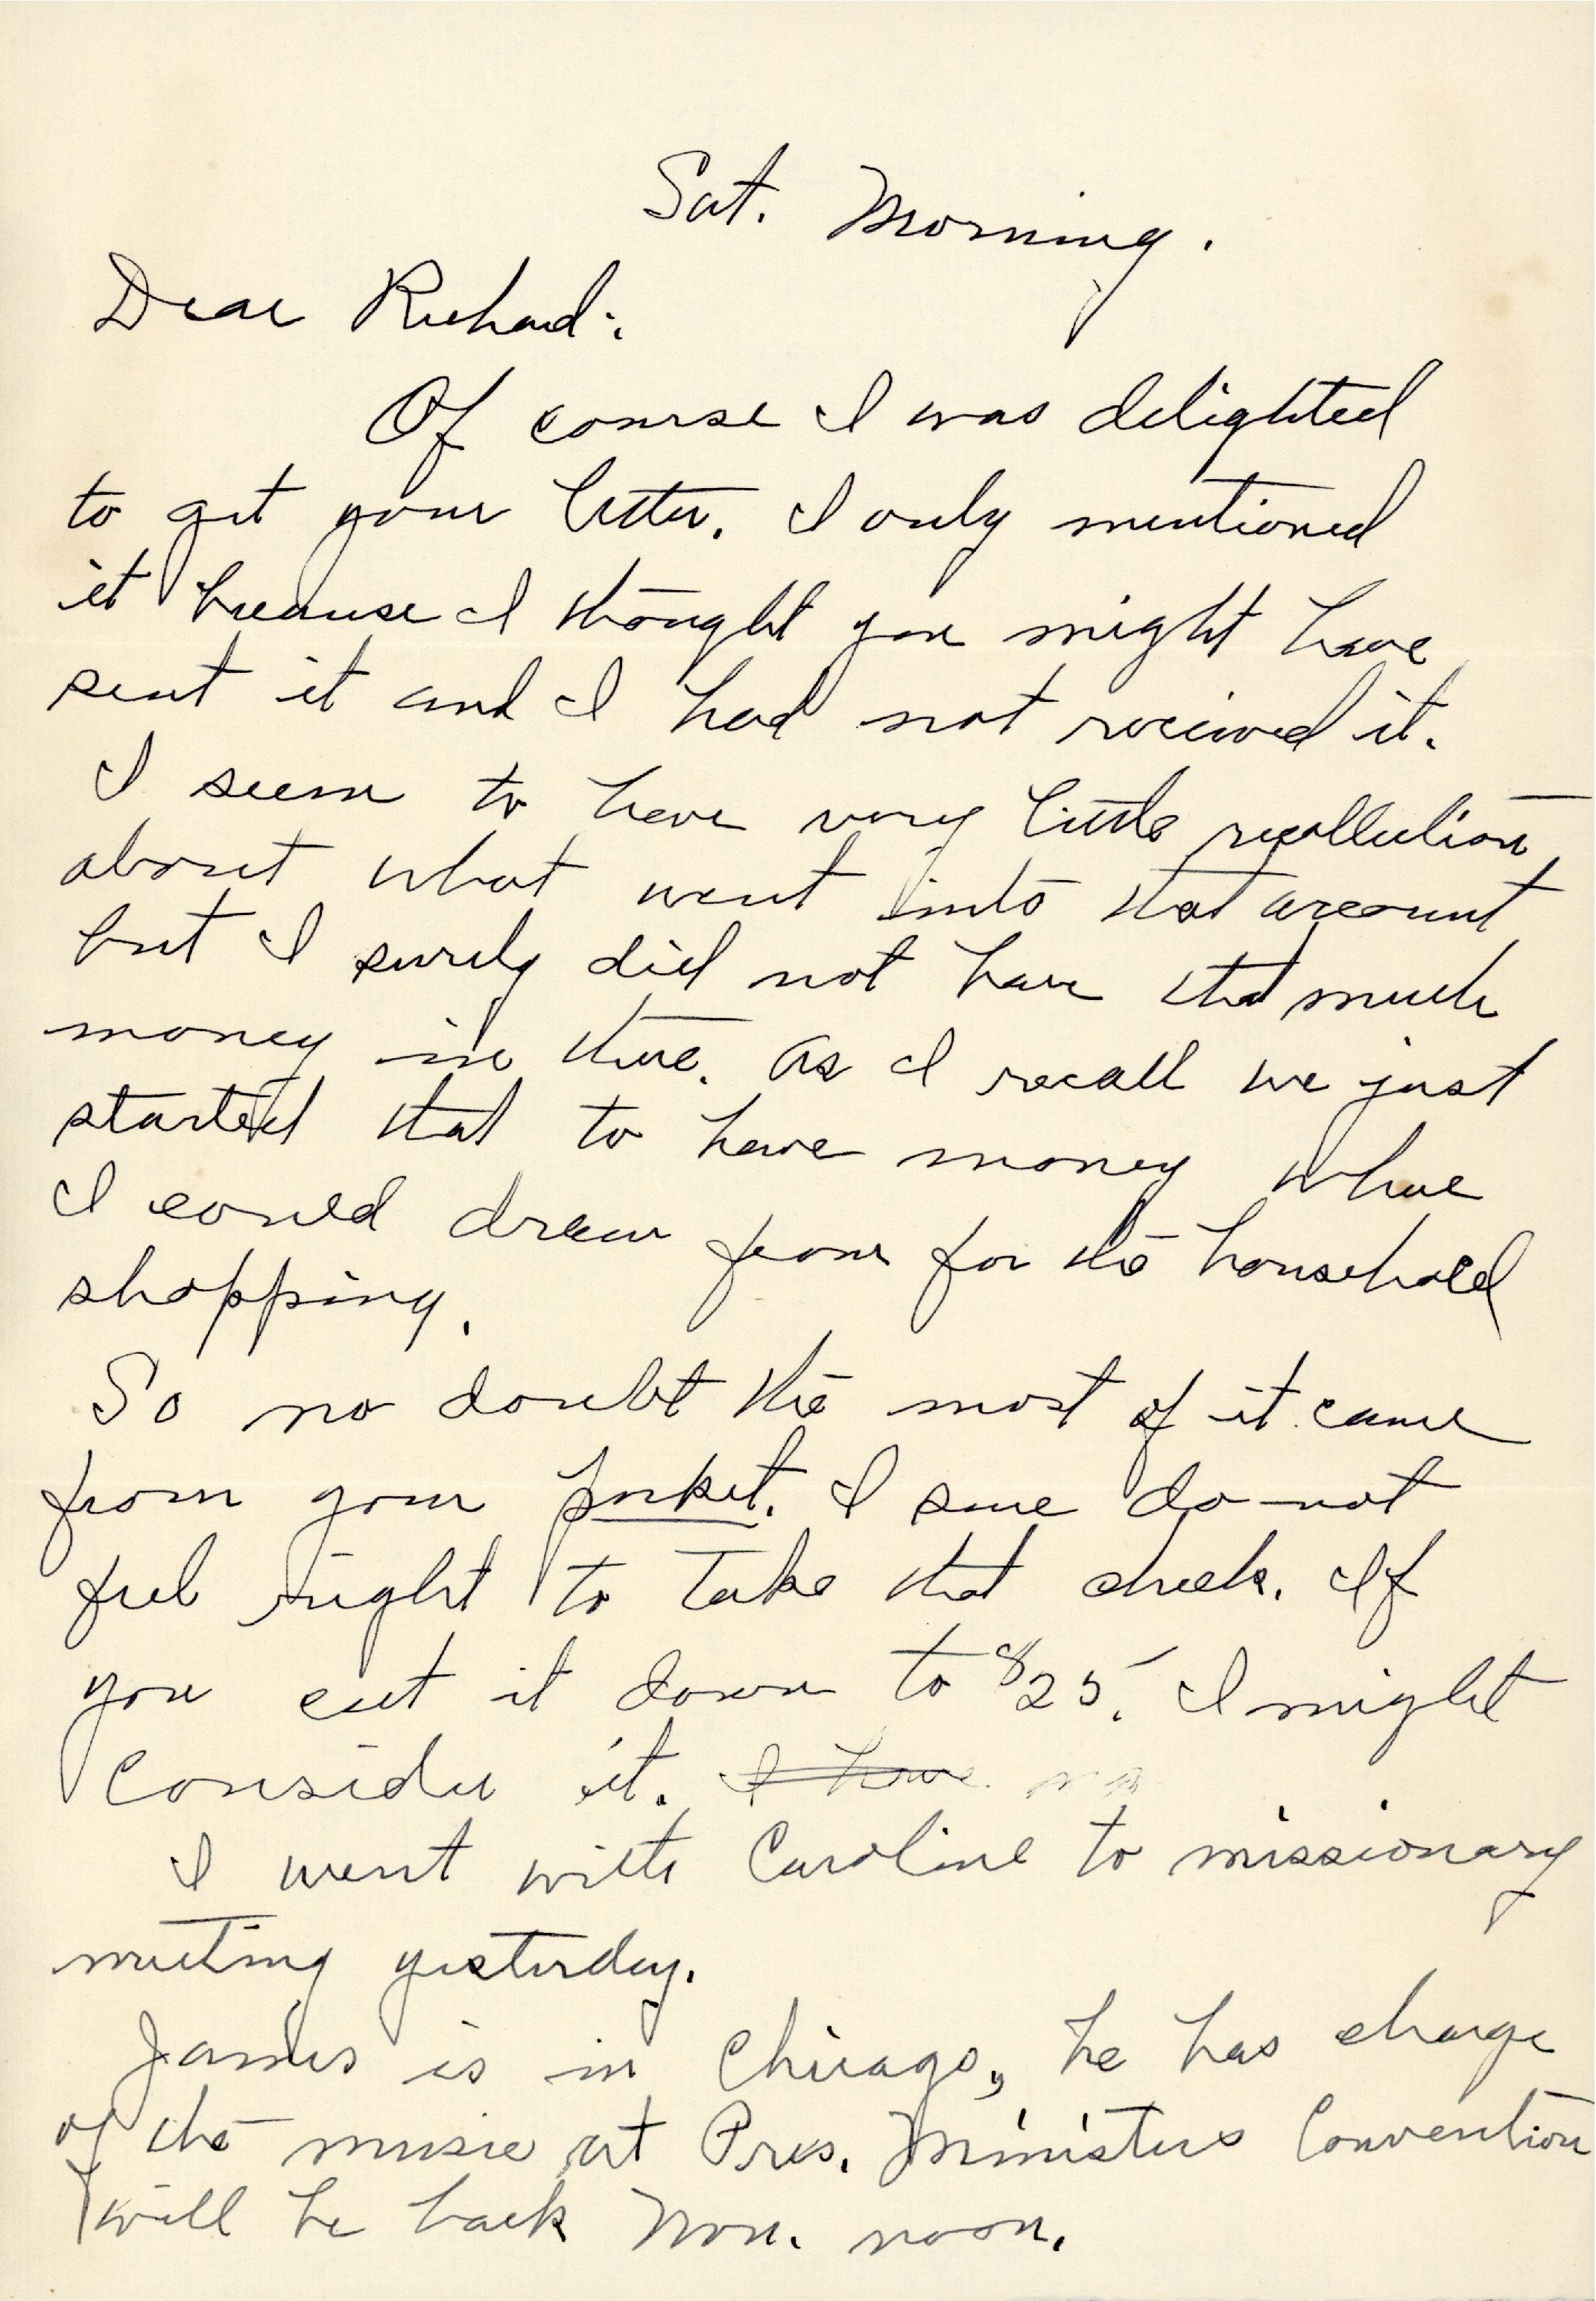 Sat. Morning.
Dear Richard:
Of course I was delighted
to get your letter. I only mentioned
it because I thought you might have
sent it and I had not received it.
I seem to have very little recollection
about what went into that account
but I surely did not have that much
money in there. As I recall we just
started that to have money where
I could draw from for the household
shopping.
So no doubt the most of it came
from your pocket. I sure do not
feel right to take that check. If
you cut it down to $25. I might
consider it. I have no
I went with Caroline to missionary
meeting yesterday.
James is in Chicago, he has charge
of the music at Pres. Ministers Convention
will be back Mon. noon.